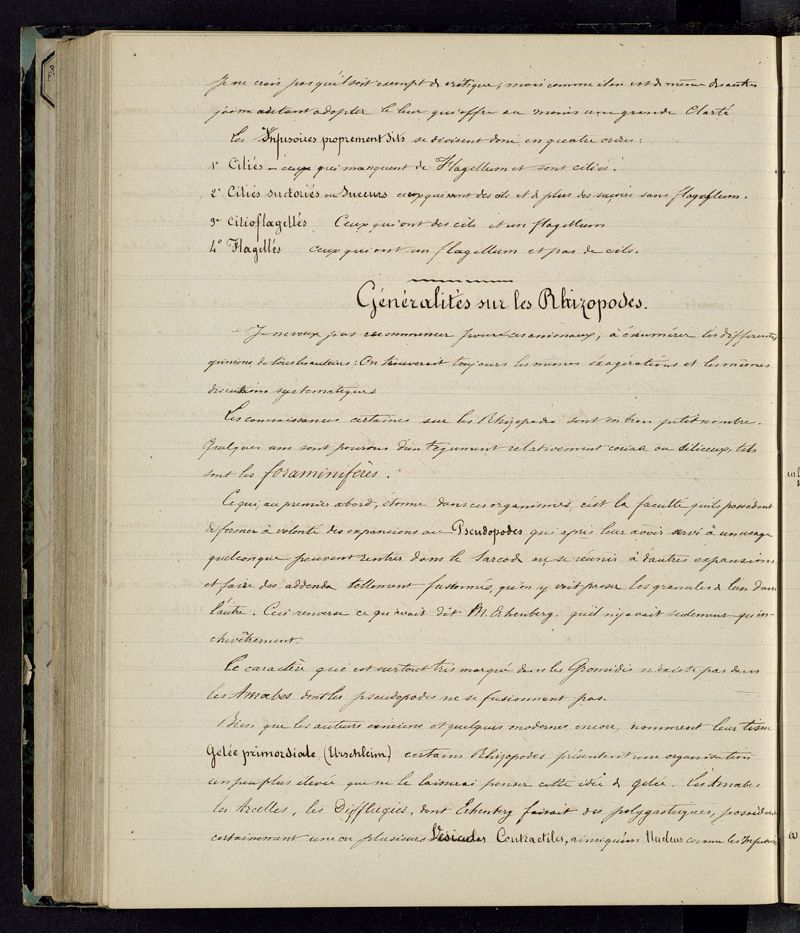 Je ne crois pas qu'il soit exempt de critique, mais comme il en est de même des autres
j'aime autant adopter le leur qui offre au moins une grande clarté
Les Infusoires proprement dits se divisent donc en quatre ordres :
1° Ciliés ceux qui manquent de Flagellum et sont ciliés.
2° Ciliés suctoriés ou Suceurs ceux qui ont des cils et de plus des suçoirs sans flagellum.
3° Cilioflagellés Ceux qui ont des cils et un flagellum
4° Flagellés ceux qui ont un flagellum et pas de cils.
Généralités sur les Rhizopodes.
Je ne veux pas recommencer pour ces animaux, à énumérer les différentes
opinions de tous les auteurs : On trouverait toujours les mêmes exagérations et les mêmes
discussions systématiques
Les connaissances certaines sur les Rhizopodes sont en bien petit nombre.
Quelques uns sont pourvus d'un tégument relativement coriace ou siliceux, tels
sont les foraminifères.
Ce qui, au premier abord, étonne dans ces organismes, c'est la faculté qu'ils possèdent
de former à volonté des expansions ou Pseudopodes qui après leur avoir servi à un usage
quelconque peuvent rentrer dans le Sarcode ou se réunir à d'autres expansions
et faire des addenda tellement fusionnés, qu'on y voit passer les granules de l'un dans
l'autre. Ceci renverse ce qu'avait dit M. Erhenberg. qu'il n'y avait seulement qu'en-
chevêtrement.
Ce caractère qui est surtout très marqué dans les Gromidés n'existe pas dans
les Amabes dont les pseudopodes ne se fusionnent pas.
Bien que les auteurs anciens et quelques modernes encore, nomment leur tissu
Gelée primordiale (Urschleim) certains Rhizopodes présentent une organisation
un peu plus élevée que ne le laisserai penser cette idée de gelée. Les Amabes
les Arcelles, les Difflugies, dont Erhenberg faisait des polygastriques, possèdent
certainement une ou plusieurs Vésicules Contractiles, ainsi qu'un Nucleus comme les Infusoires